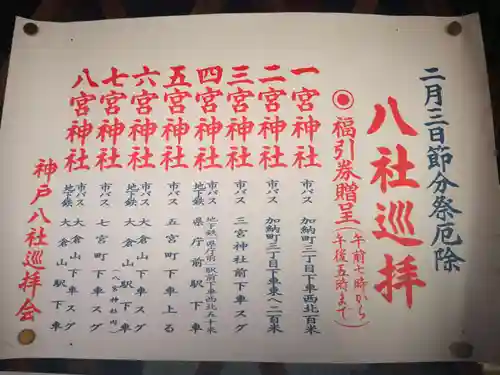 二月三日節分祭厄除
八社巡拝
◎福引券贈呈(午前七時から午後五時まで)
一宮神社 市バス 加納町三丁目下車西北百米
二宮神社 市バス 加納町三丁目下車東へ二百米
三宮神社 市バス 三宮神社前下車スグ
四宮神社 市バス 地下鉄(県庁前)駅前下車西北五十米
地下鉄 県庁前駅下車
五宮神社 市バス 五宮町下車上る
六宮神社 市バス 大倉山下車スグ
地下鉄 大倉山駅下車
七宮神社 市バス 七宮町下車
八宮神社 市バス 大倉山下車スグ
地下鉄 大倉山駅下車
神戸八社巡拝会